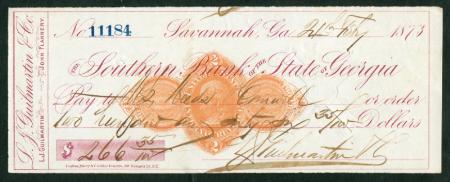 L. J. Guilmartin & Co.
L.J. GUILMARTIN
JOHN FLANNERY
No 11184 Savannah, Ga. 1873
THE Southern Bank OF THE State OF Georgia
Pay to or order
Two hundred and sixty six 55/100 Dollars
$ 266 55/100
L J Guilmartin & Co